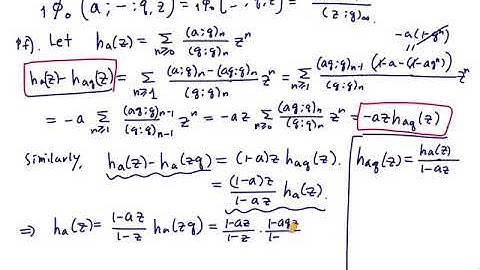 ₁φ₀ (a ; − ; q, z) = ₁φ₀ ( − ; q, z) = / (z ; q)∞
pf). Let hₐ(z) = Σ_{n≥0} (a;q)ₙ/(q;q)ₙ zⁿ
−a(1−qⁿ)
hₐ(z) − h_{aq}(z) = Σ_{n≥1} ((a;q)ₙ − (aq;q)ₙ)/(q;q)ₙ zⁿ = Σ_{n≥1} (aq;q)ₙ₋₁ (1−a−(1−aqⁿ))/(q;q)ₙ zⁿ
= −a Σ_{n≥1} (aq;q)ₙ₋₁/(q;q)ₙ₋₁ zⁿ = −az Σ_{n≥0} (aq;q)ₙ/(q;q)ₙ zⁿ = −az h_{aq}(z)
Similarly, hₐ(z) − hₐ(zq) = (1−a)z h_{aq}(z).
h_{aq}(z) = hₐ(z)/(1−az)
= (1−a)z/(1−az) hₐ(z).
⇒ hₐ(z) = (1−az)/(1−z) hₐ(zq) = (1−az)/(1−z) · (1−aqz)/(1−